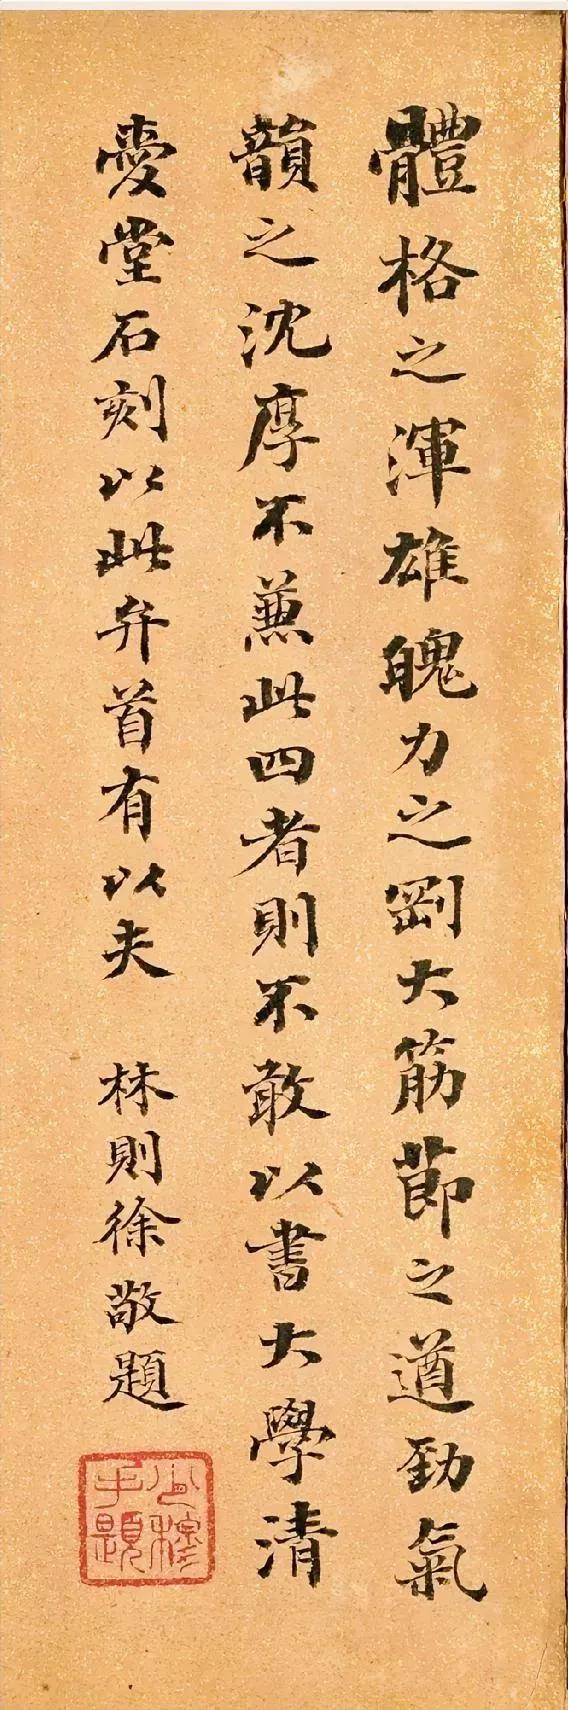 體格之渾雄魄力之剛大筋節之遒勁氣
韻之沈厚不兼此四者則不敢以書大學清
愛堂石刻以此弁首有以夫
林則徐敬題
少穆手題